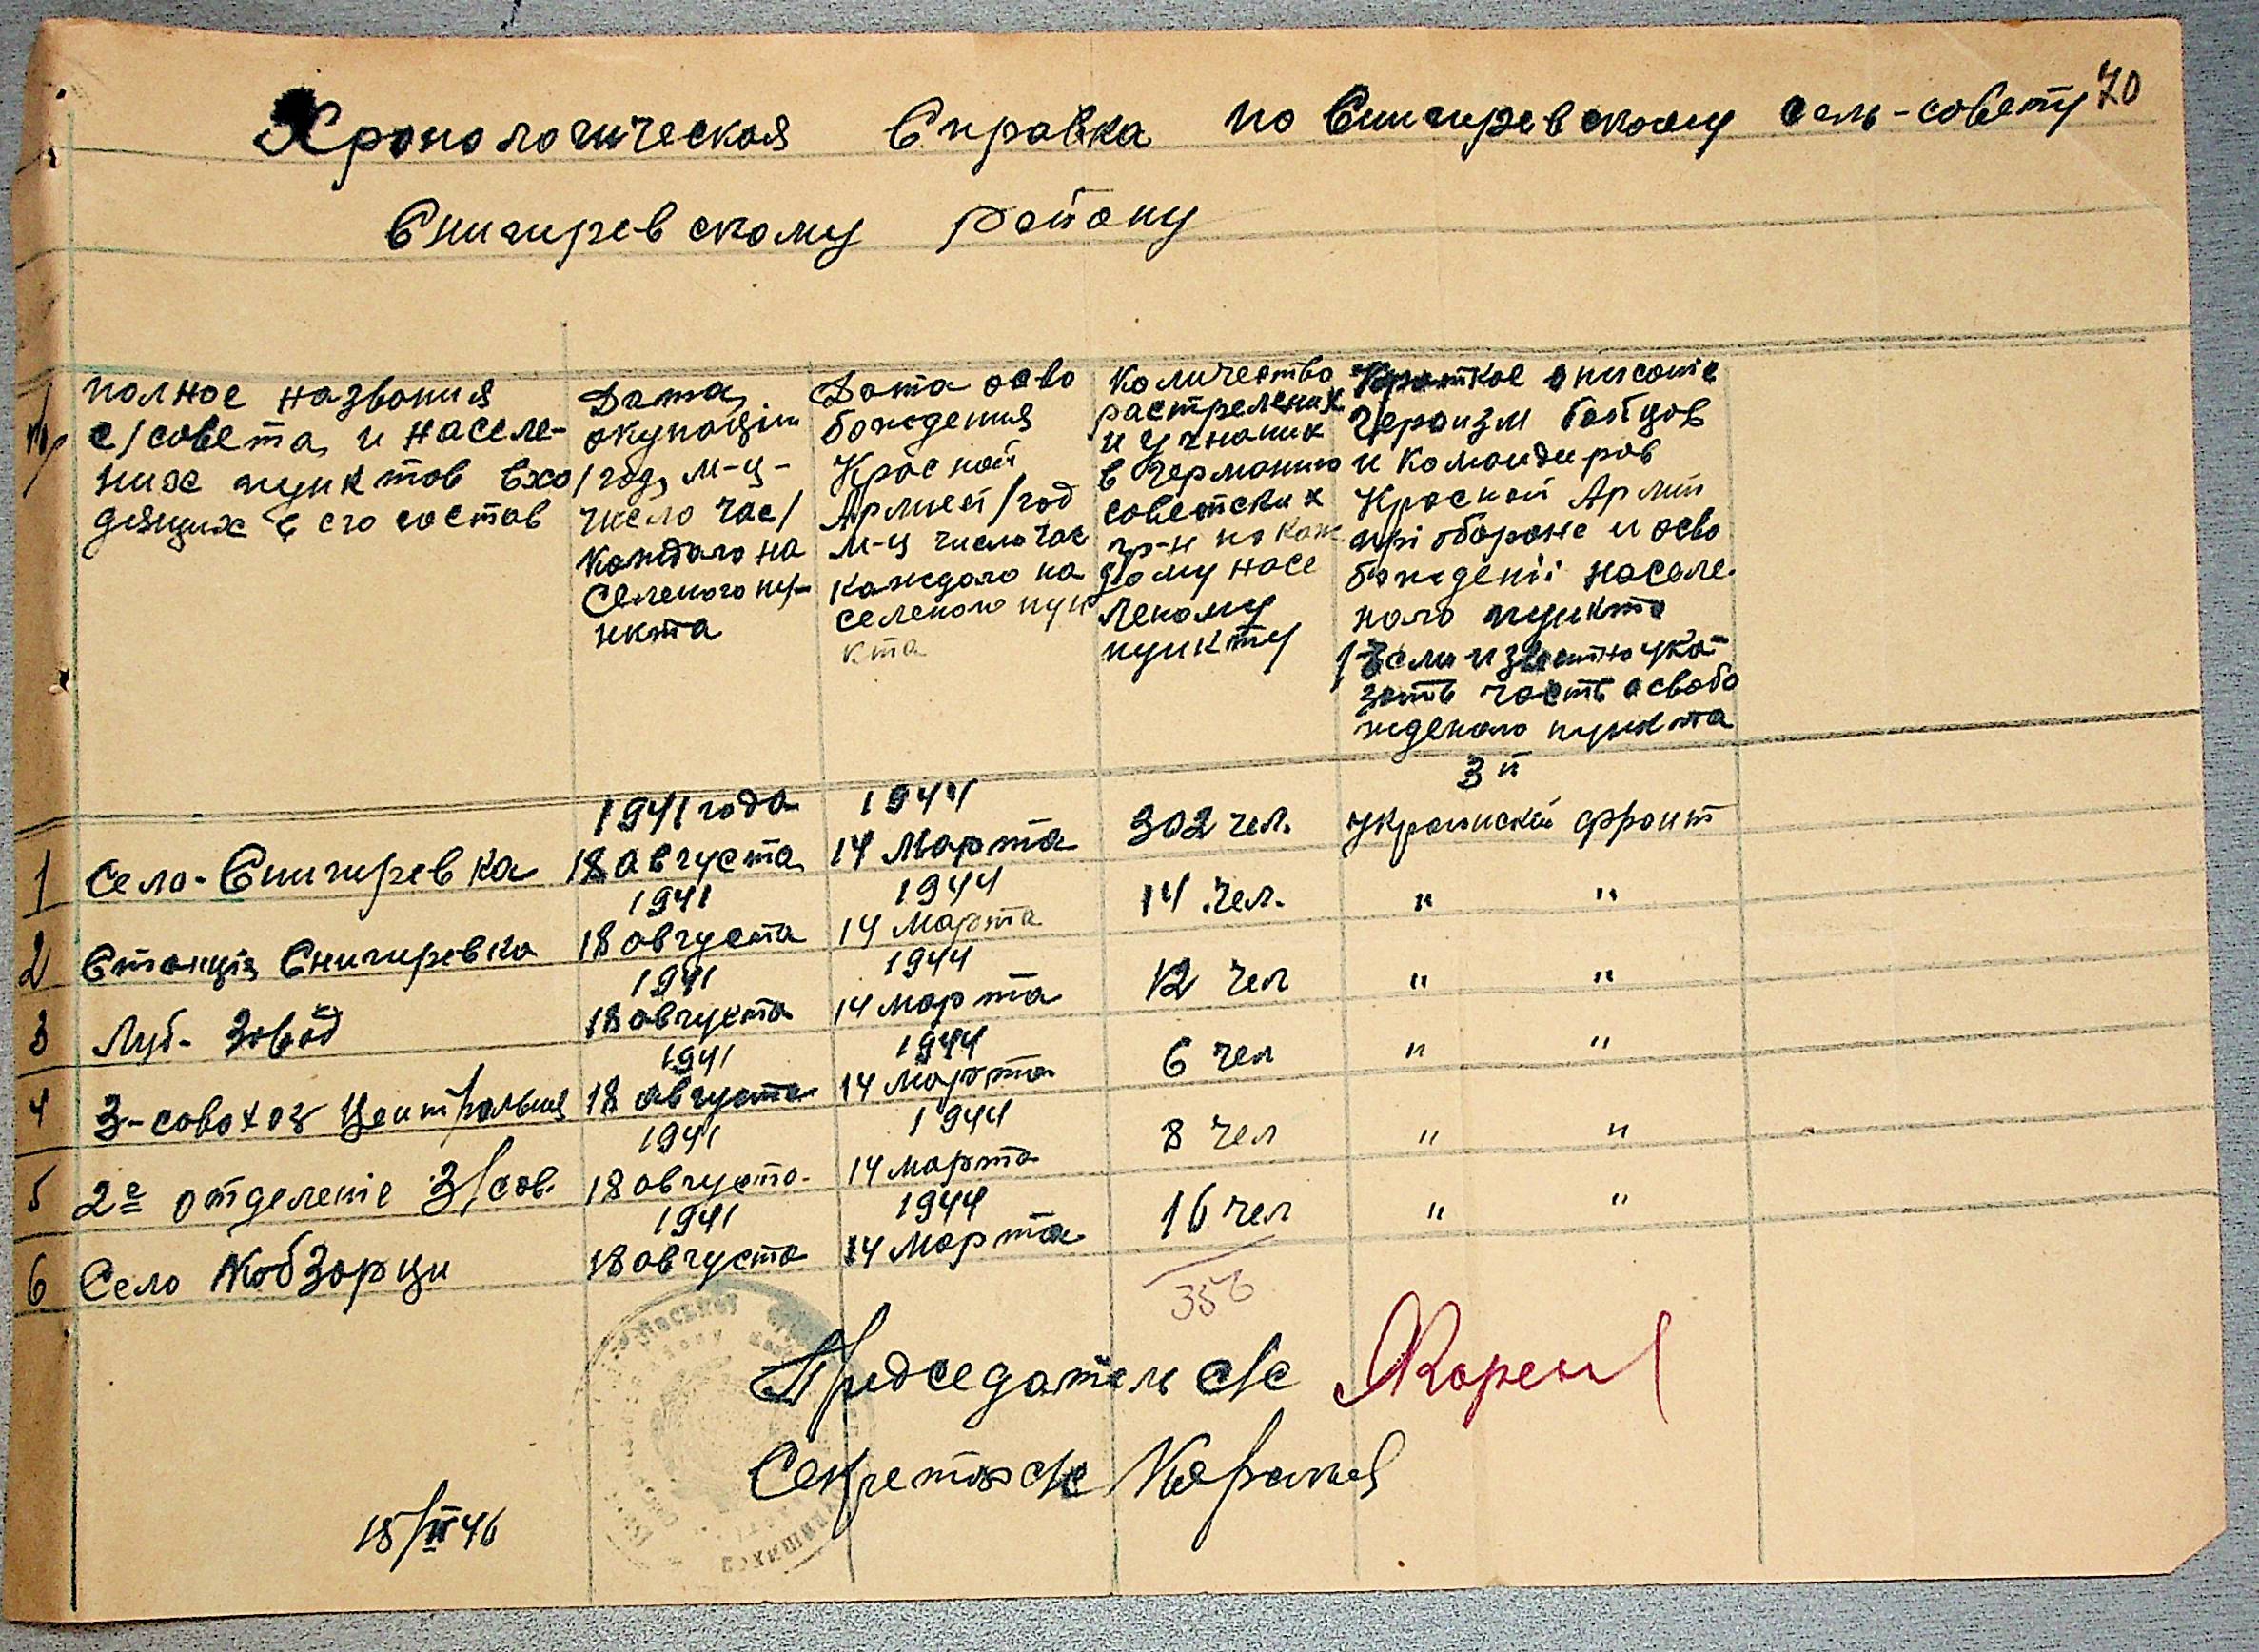 70
Хронологическая Справка по Снигиревскому сель-совету
Снигиревскому району
№
полное названия
с/совета и населе-
них пунктов вхо
дящих в его состав
Дата
окупаціи
/год, м-ц-
число час/
Каждого на
Селеного пу-
нкта
Дата осво
бождения
Красной
Армией /год
м-ц число час
каждого на
селеного пун
кта
Количество
растреленых
и угнаних
в германию
советских
гр-н по каж
дому насе
леному
пункту
Краткое описаніе
героизм бойцов
и командиров
Красной Арміи
при обороне и осво
бождениі населе-
ного пункта
/Если известно ука-
зать часть освобо
жденого пункта
1 Село-Снигиревка 1941 года 18 августа 1944 14 Марта 302 чел. 3й украинскій фронт
2 Станція Снигиревка 1941 18 августа 1944 14 Марта 14 чел. " "
3 Луб- Завод 1941 18 августа 1944 14 марта 12 чел " "
4 З-совохоз Центральная 1941 18 августа 1944 14 Марта 6 чел " "
5 2е отделеніе З/сов. 1941 18 августа 1944 14 марта 8 чел " "
6 Село Кобзарци 1941 18 августа 1944 14 Марта 16 чел " "
358
Председатель с/с
Секретарь с/с
18/II 46